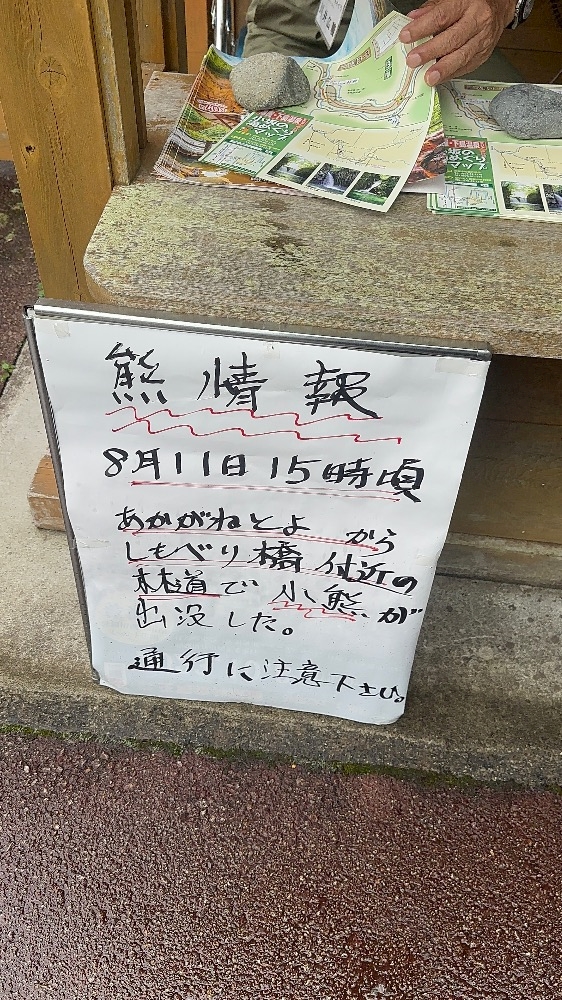 熊情報
8月11日15時頃
あかがねとよ から
しもべり橋付近の
林道で小熊が
出没した。
通行に注意下さい。